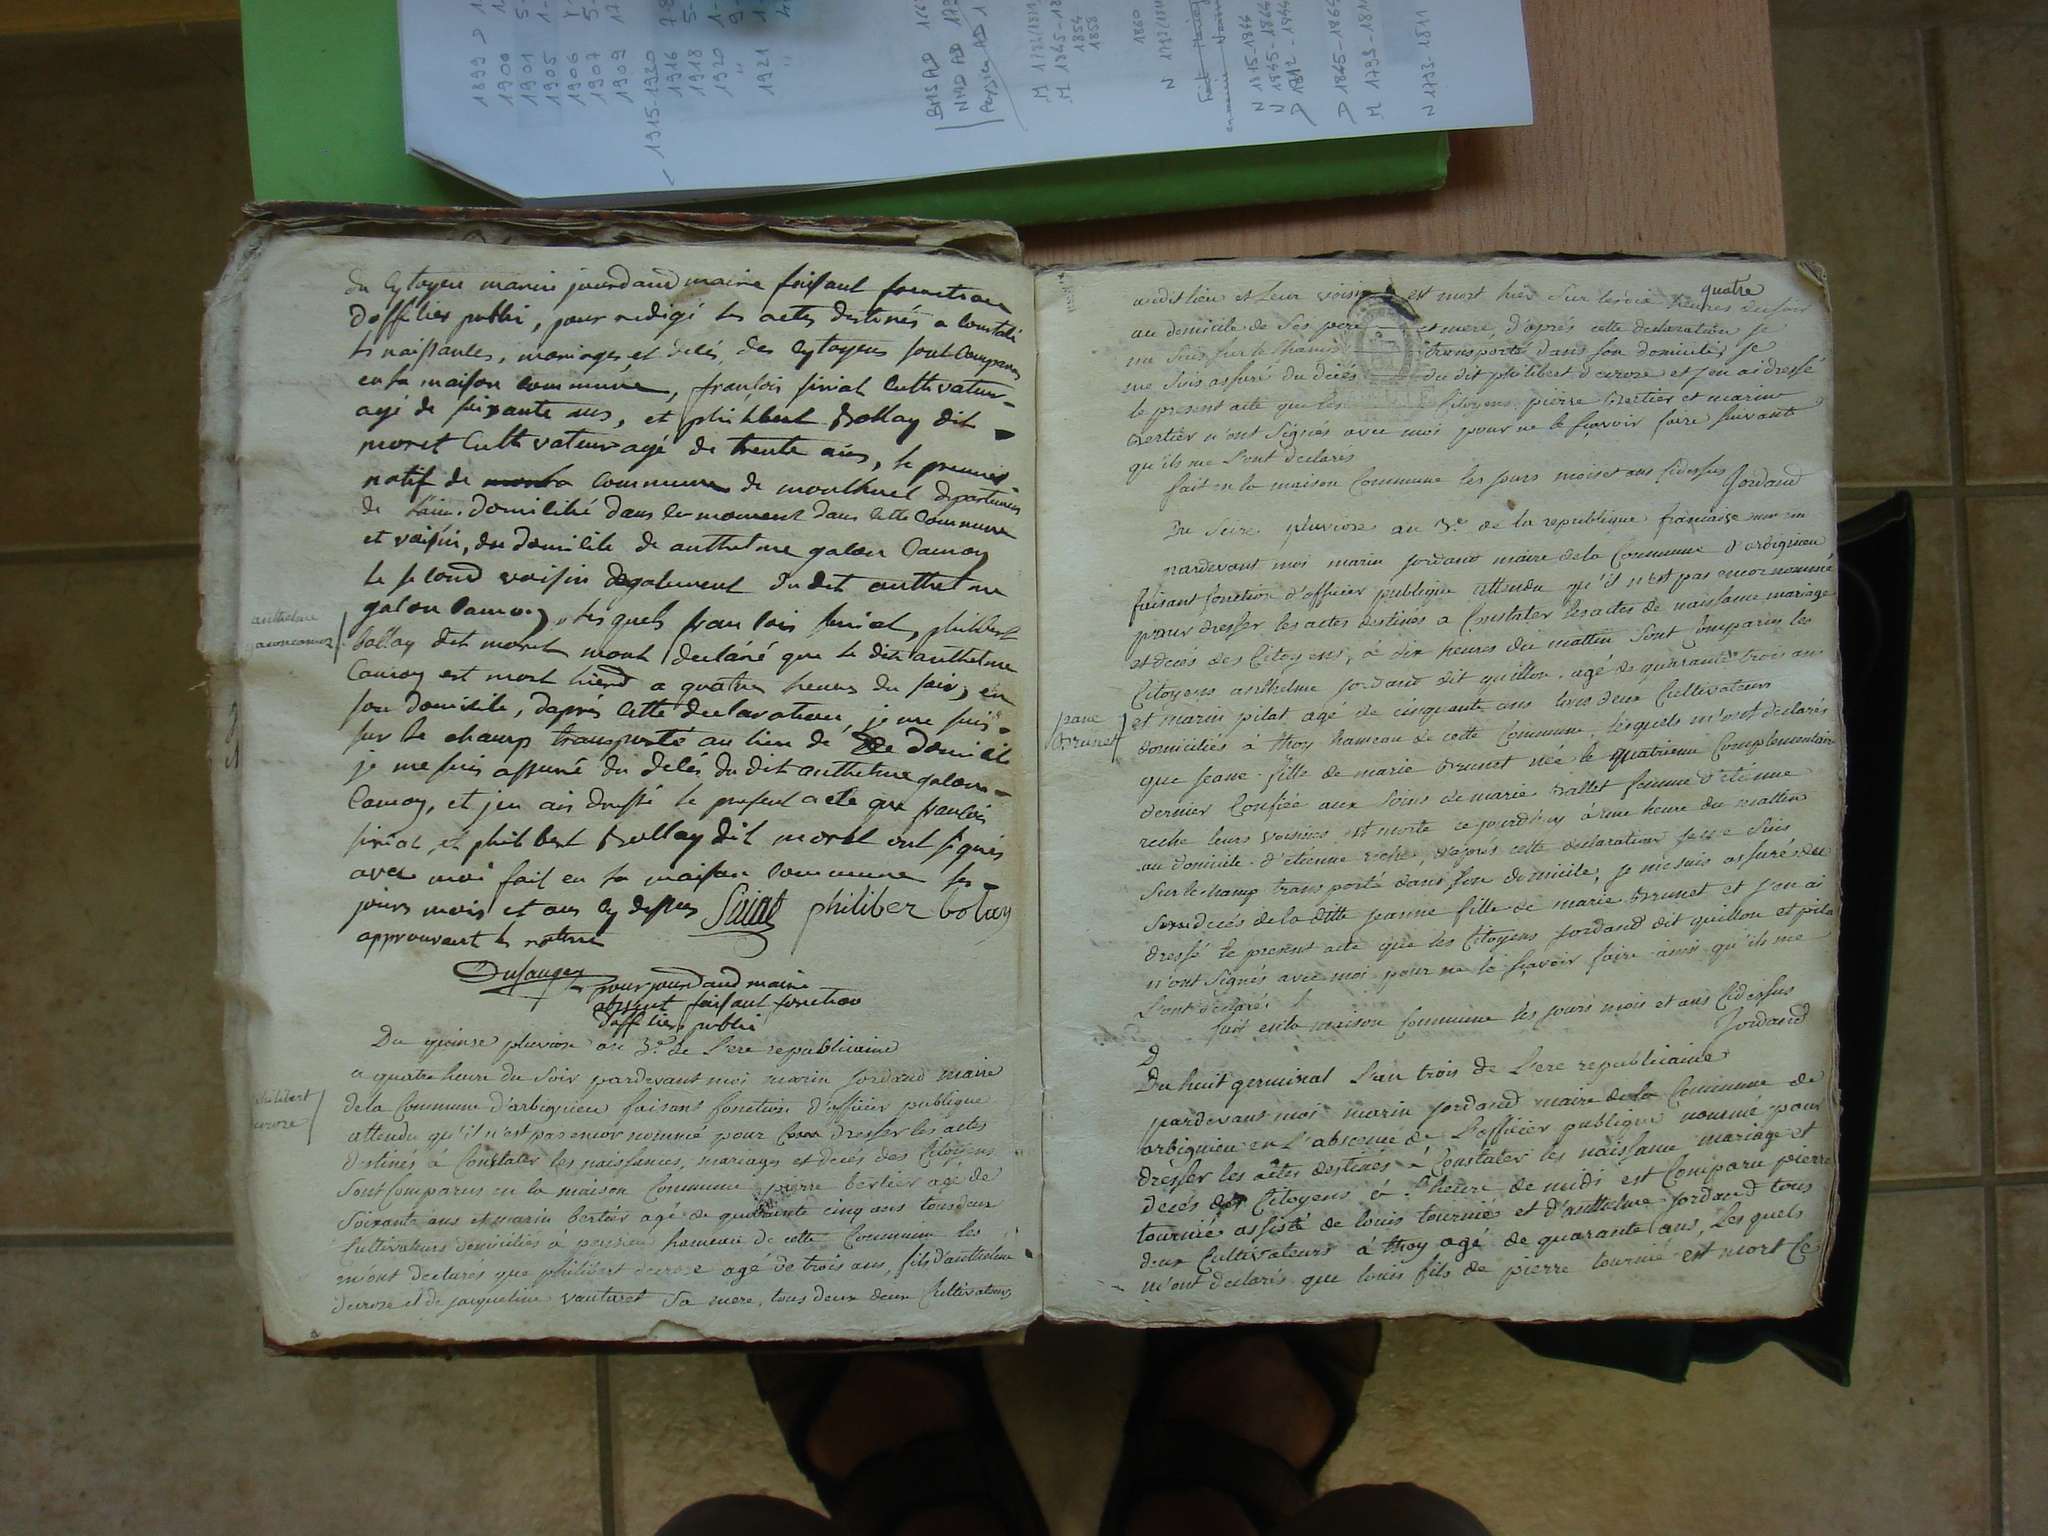 1899
1900
1901
1905
1906
1907
1909
1915-1920
1916
1918
1920
1921
BMS AD
NMD AD
M 1792/1811
M 1845-18
1854
1858
1860
N 1792/1811
N 1815-1844
N 1845-1864
D 1812-1844
D 1845-1864
M 1793-1811
N 1793-1811
du Cytoyen marin jourdand maire faisant fonction
d'officier public, pour redigé les actes destinés a constaté
les naissances, mariages et decés des Cytoyens sont comparus
en la maison commune, francois siniat cultivateur
agé de soixante ans, et philibert Bollay dit
moret cultivateur agé de trente ans, le premier
natif de commune de monthuel departement
de l'ain domicilié dans le moment dans cette commune
et voisin du domicile de anthelme galon Camoz
le second voisin egalement du dit anthelme
galon Camoz, lesquels francois siniat, philibert
bollay dit moret mont declaré que le dit anthelme
Camoz est mort hierd a quatre heures du soir, en
son domicile, daprés cette declaration, je me suis
sur le champ transporté au lieu de domicile
je me suis assuré du delés du dit anthelme galon
Camoz, et jen ais dressé le present acte que francois
siniat, et philibert Bollay dit moret ont signés
avec moi fait en la maison commune les
jours mois et ans cy dessus Siniat philiber bolay
approuvant la nature
Dusauger
pour jourdand maire
absent faisant fonction
dofficier public
anthelme
Du quinse pluviose an 3e de l'ere republicaine
a quatre heure du soir pardevant moi marin Jordand maire
de la Commune d'arbignieu faisant fonction d'officier publique
attendu qu'il n'est pas encor nommé pour dresser les actes
destinés à Constater les naissances, mariages et decés des Citoyens
sont Comparus en la maison Commune pierre bertier agé de
soixante ans et marin bertier agé de quarante cinq ans tous deux
Cultivateurs domiciliés à peyzieu hameau de cette Commune les
m'ont declarés que philibert decroze agé de trois ans, fils d'anthelme
decroze et de jacqueline vauturet sa mere, tous deux deux Cultivateurs
philibert
decroze
quatre
audit lieu et leur voisin est mort hier sur les heures du soir
au domicile de ses pere et mere, d'aprés cette declaration je
me suis sur le champ transporté dans son domicile, je
me suis assuré du décés du dit philibert decroze et j'en ai dressé
le present acte que les Citoyens pierre Bertier et marin
Bertier n'ont signés avec moi pour ne le sçavoir faire suivant
qu'ils me l'ont declarés
fait en la maison Commune les jours mois et ans cidessus Jordand
Du seize pluviose an 3e de la republique française
pardevant moi marin Jordand maire de la Commune d'arbignieu
faisant fonction d'officier publique attendu qu'il n'est pas encor nommé
pour dresser les actes destinés a Constater les actes de naissance mariage
et decés des Citoyens, à dix heures du mattin sont Comparus les
Citoyens anthelme Jordand dit quillon agé de quarante trois ans
et marin pilat agé de cinquante ans tous deux Cultivateurs
domiciliés à thoy hameau de cette Commune, lesquels m'ont declarés
que Jeane fille de marie Brunet née le quatrieme Complementaire
dernier Confiée aux soins de marie Ballet femme d'etienne
reche leurs voisins est morte ce jourdhuy à une heure du mattin
au domicile d'etienne reche, d'aprés cette declaration je me suis
sur le champ transporté dans son domicile, je me suis assuré du
decés de la ditte jeanne fille de marie Brunet et j'en ai
dressé le present acte que les Citoyens Jordand dit quillon et pilat
n'ont signés avec moi pour ne le sçavoir faire ainsi qu'ils me
l'ont declarés
fait en la maison Commune les jours mois et ans cidessus
Jordand
jeane
Brunet
D
Du huit germinal l'an trois de l'ere republicaine
pardevant moi marin Jordand maire de la Commune de
arbignieu en l'absence de l'officier publique nommé pour
dresser les actes destinés à Constater les naissance mariage et
decés des Citoyens à l'heure de midi est Comparu pierre
tournié assisté de louis tournié et d'anthelme Jordand tous
deux Cultivateurs à thoy agé de quarante ans, lesquels
m'ont declarés que louis fils de pierre tournié est mort ce